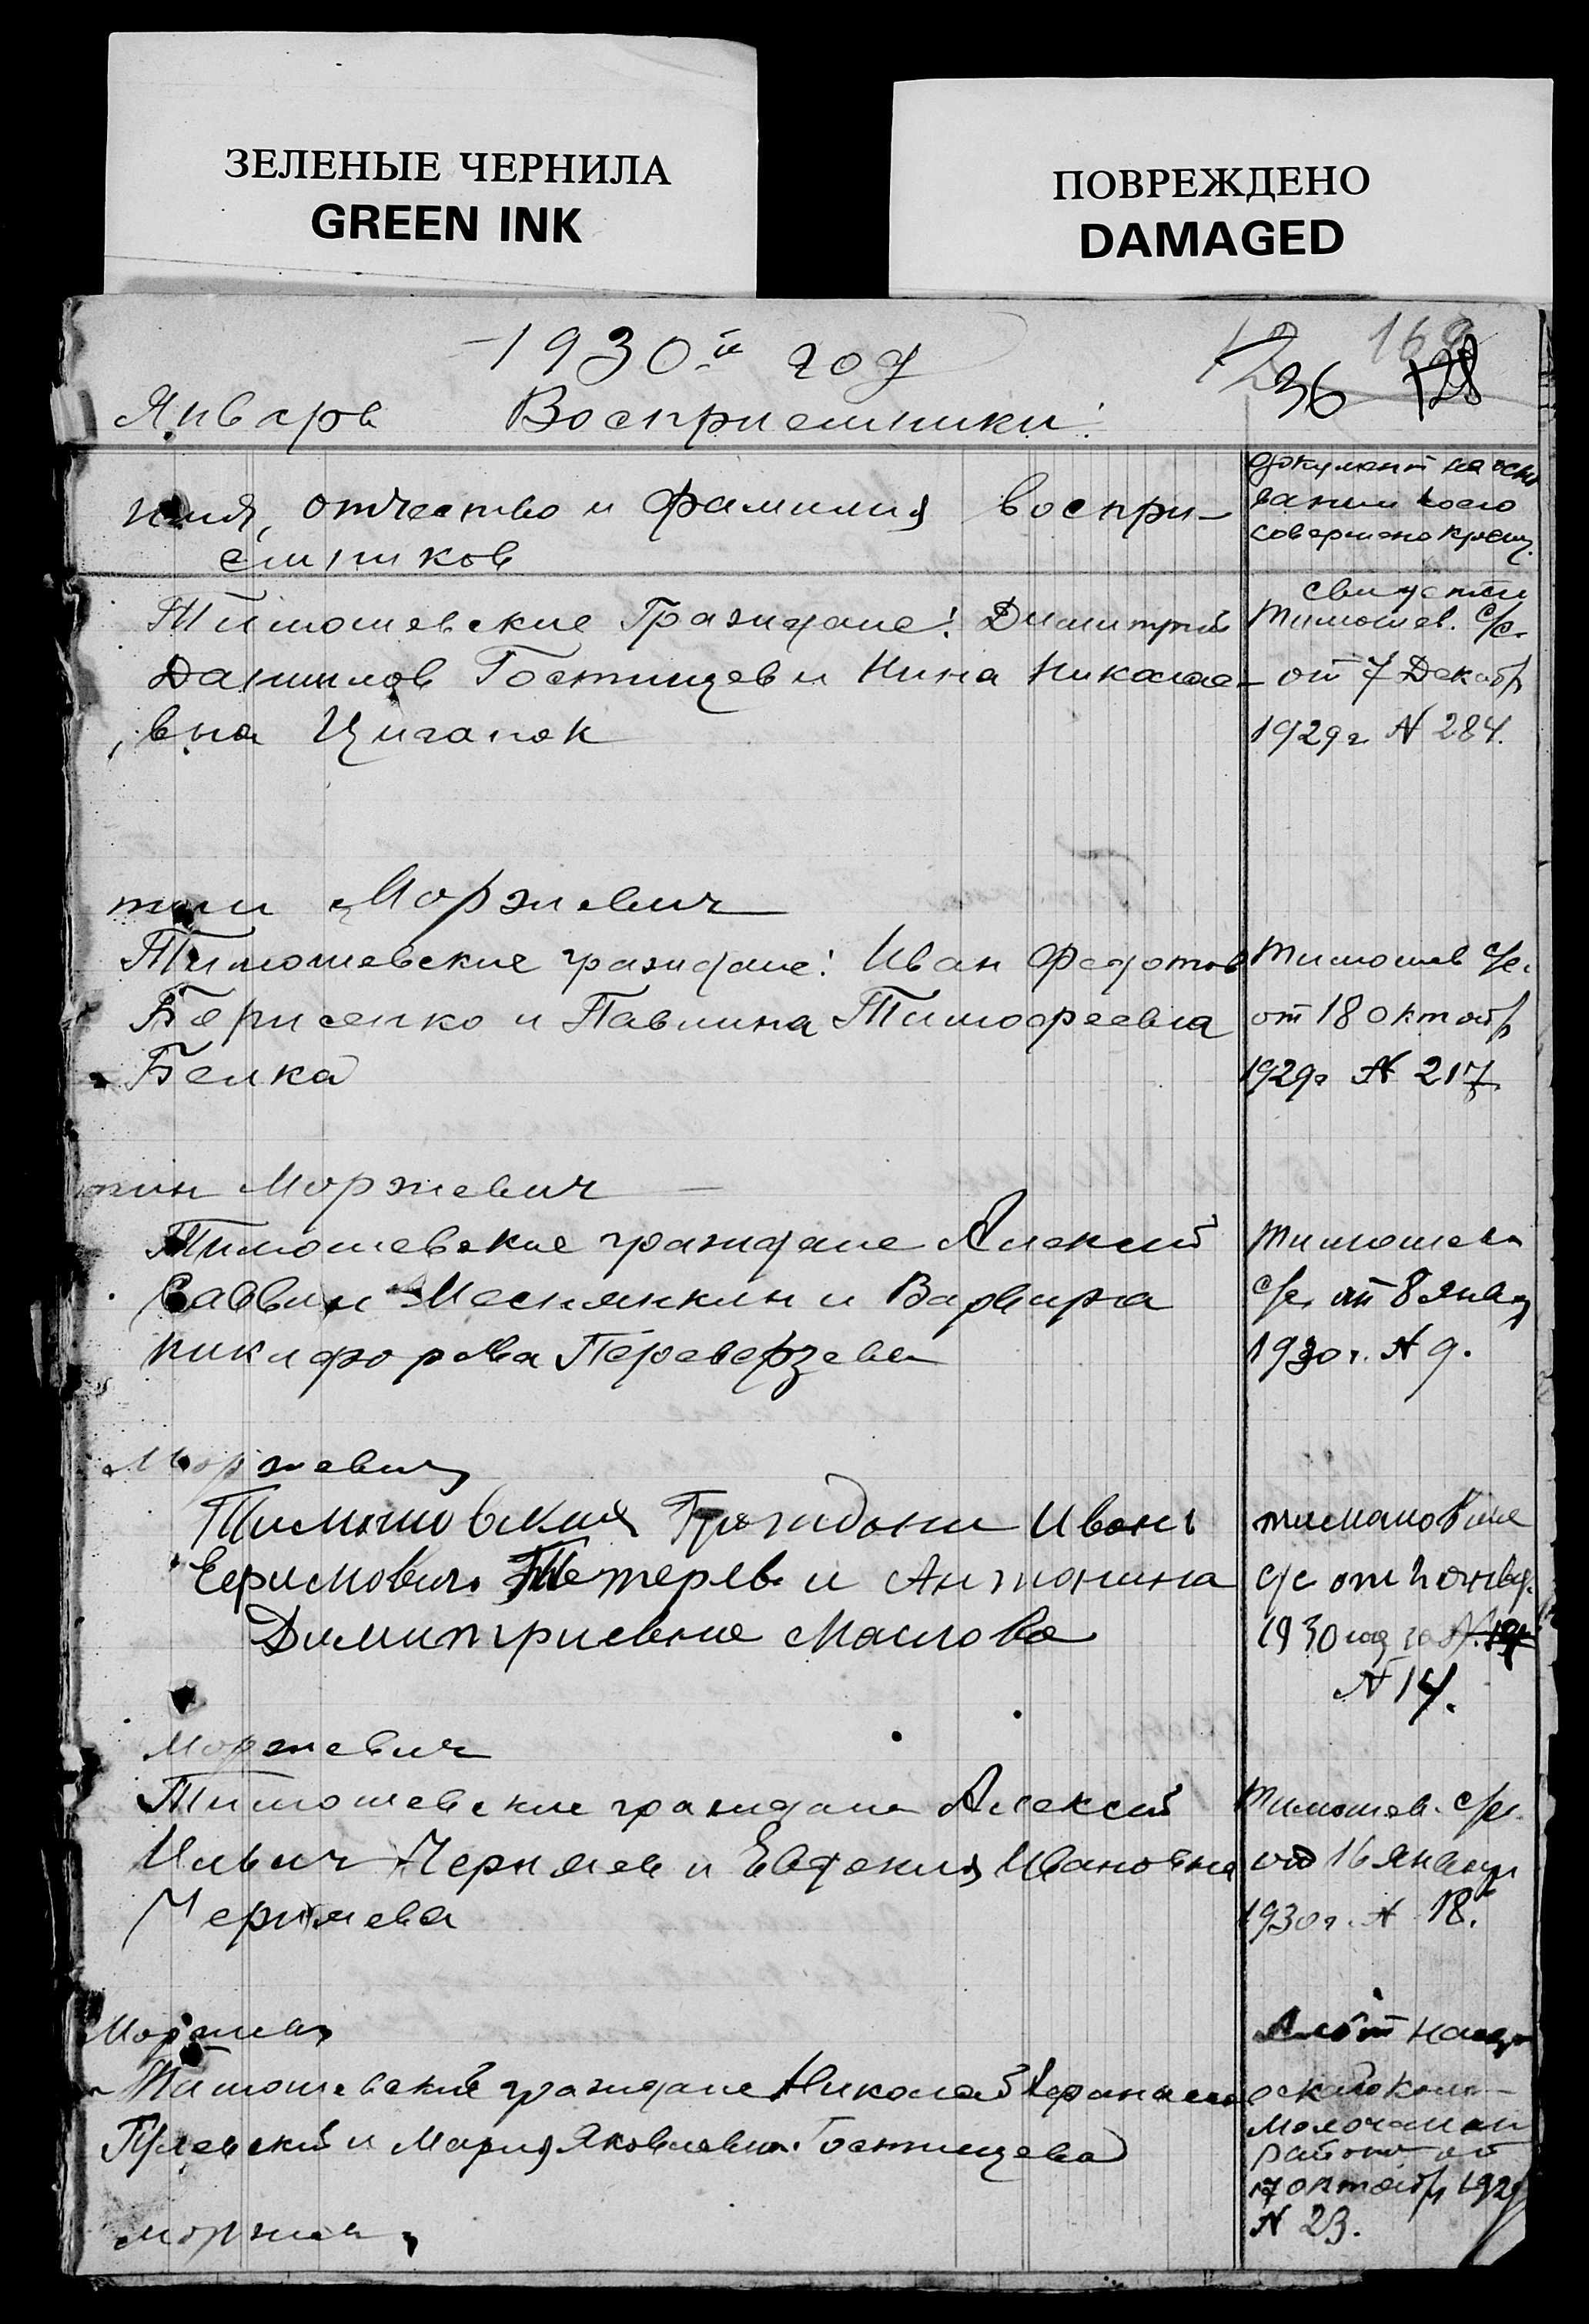 ЗЕЛЕНЫЕ ЧЕРНИЛА
GREEN INK
ПОВРЕЖДЕНО
DAMAGED
1930й год
36 128
Январь Восприемники:
имя, отчество и фамилия воспри-
емников
документ на осно
вании коего
совершено крещ.
Тимошевские Граждане: Димитрий
Данилов Гостищев и Нина Николае-
вна Цыганок
Тимошев. с/с.
от 7 Декабр
1929 г N 284.
Моржевич
Тимошевские граждане: Иван Федотов
Борисенко и Павлина Тимофеевна
Белка
Тимошев с/с.
от 18 октябр
1929 г N 217
Моржевич
Тимошевские граждане Алексей
Саввич Меснянкин и Варвара
Никифоровна Переверзева
Тимошев
с/с. от 8 янва
1930 г. N 9.
Моржевич
Граждани Иванъ
Ефимович Тетерев и Антонина
Димитриевна Маслова
с/с от
1930 год
N 14.
Моржевич
Тимошевские граждане Алексей
Ильич Черняев и Евдокия Ивановна
Черняева
Тимошев. с/с.
от 16 января
1930 г. N 18.
Тимошевский граждане Николай
и Мария Яковлевна Гостищева
района от
17 октябр 1929
N 23.